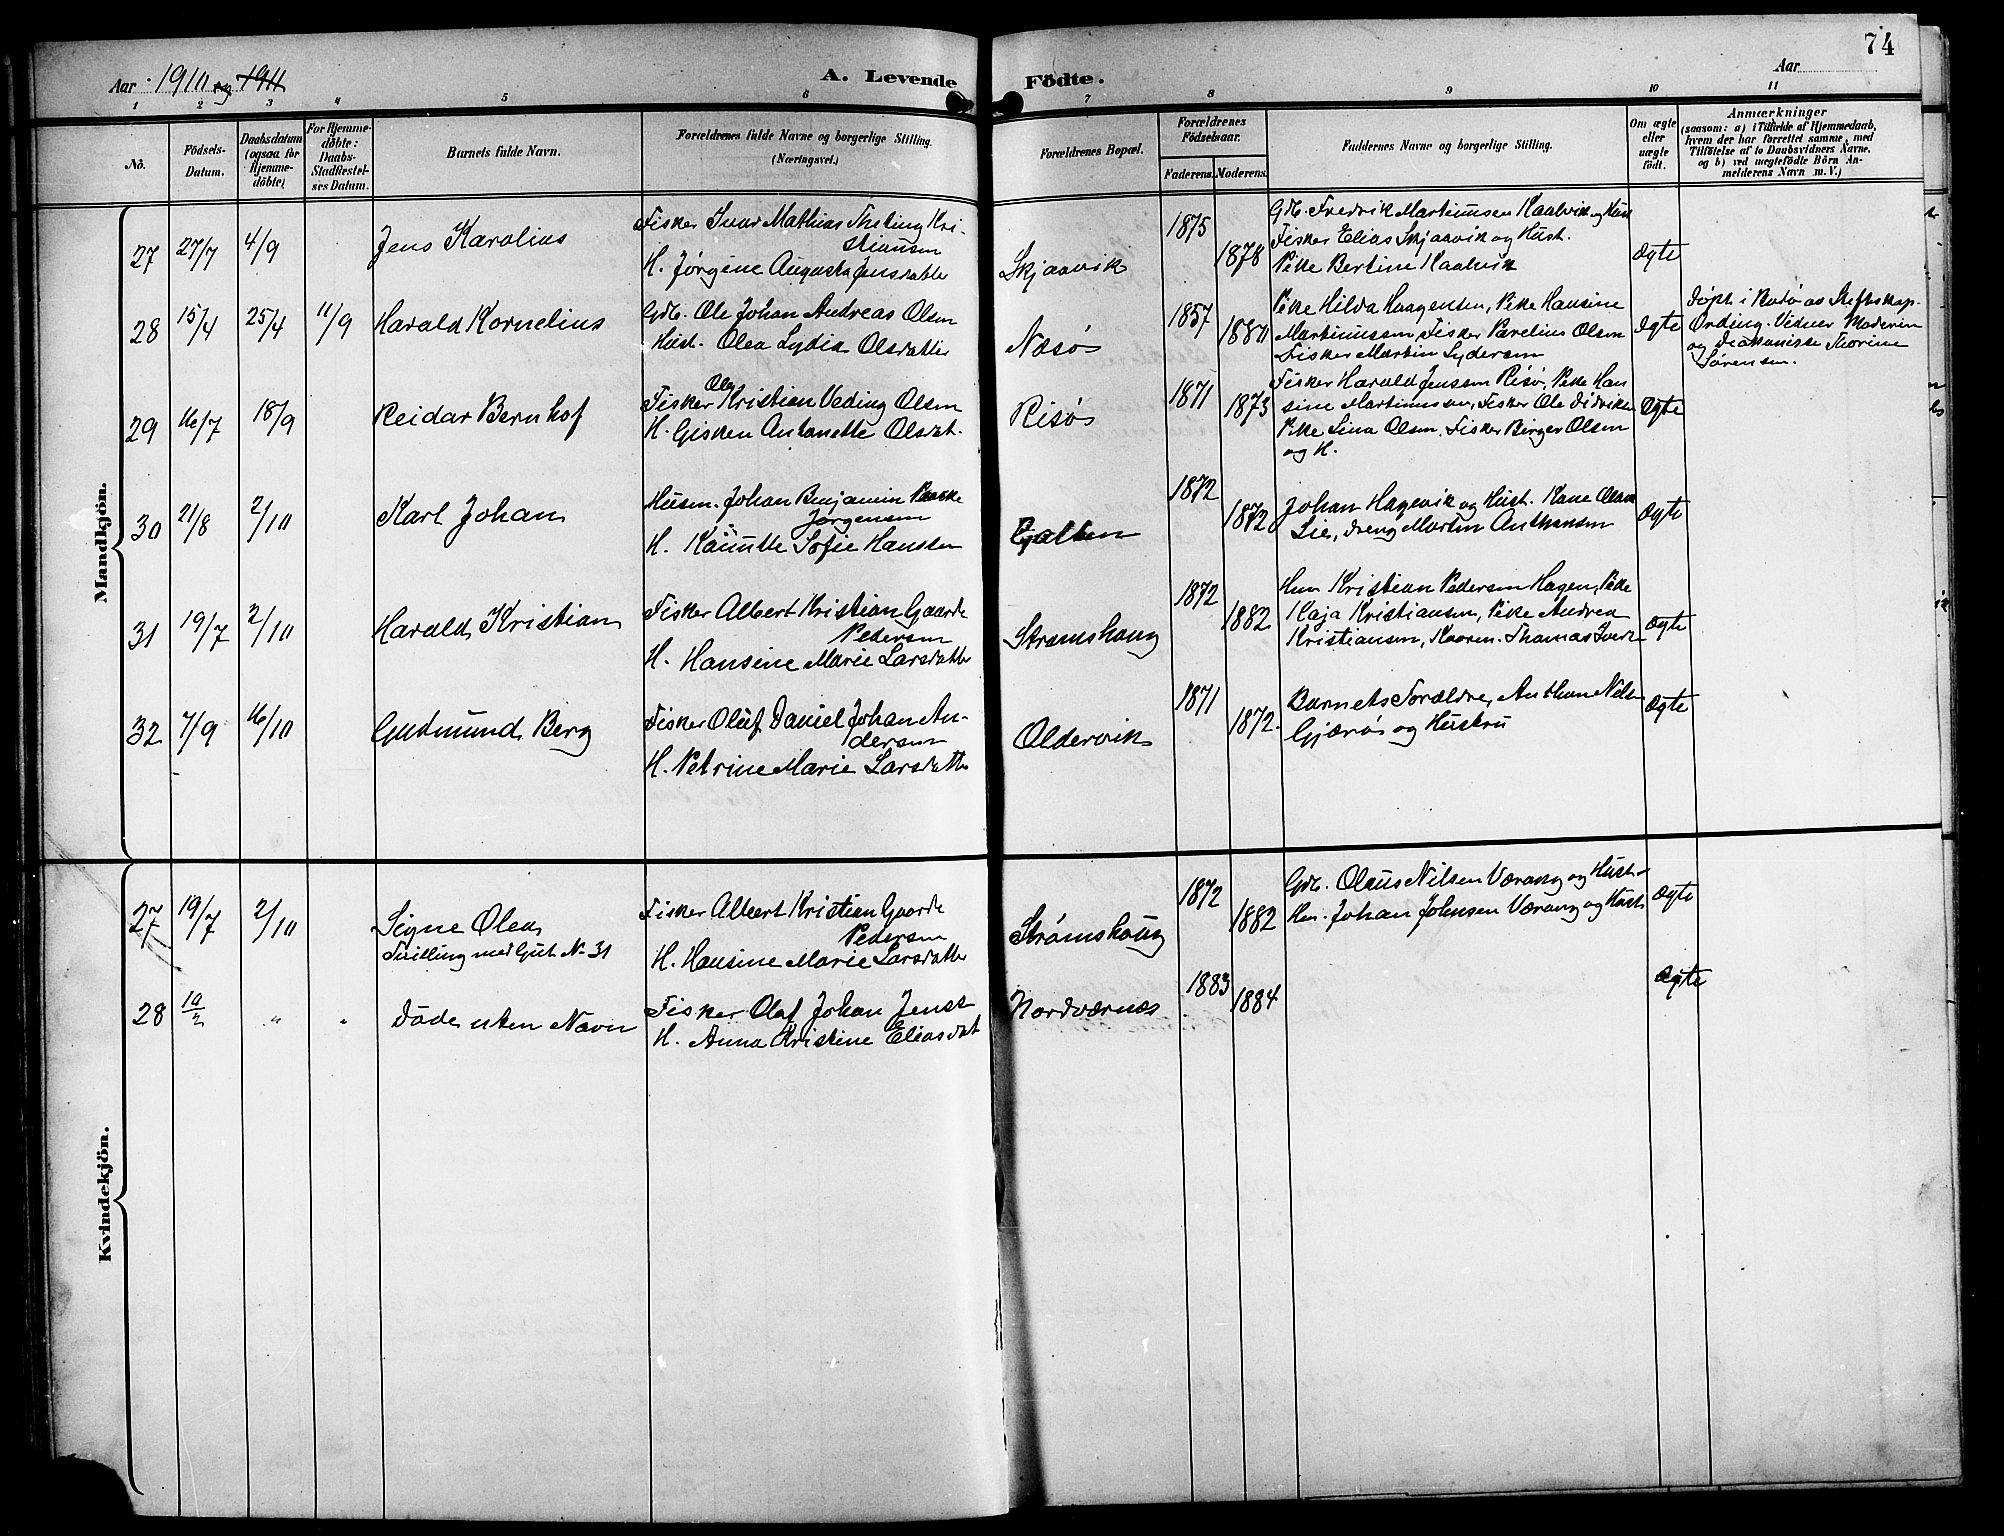 74
Aar 1910 og 1911
A. Levende Födte.
Aar
1 2 3 4 5 6 7 8 9 10 11
No.
Födsels-Datum.
Daabsdatum (ogsaa for Hjemmedöbte)
For Hjemmedöbte: Daabs-Stadfestelses Datum.
Barnets fulde Navn.
Forældrenes fulde Navne og borgerlige Stilling. (Næringsvei.)
Forældrenes Bopæl.
Forældrenes Födselsaar.
Faderens. Moderens.
Faddernes Navne og borgerlige Stilling.
Om ægte eller uægte födt.
Anmærkninger
(saasom: a) i Tilfælde af Hjemmedaab, hvem der har forrettet samme, med Tilföielse af to Daabsvidners Navne, og b) ved uegtefödte Börn Anmelderens Navn m. V.)
Mandkjön.
27 27/7 4/9
Jens Karolius
Fisker Ivar Mathias Kri-
stiansen
H. Jørgine Augusta Jensdatter
Skjaavik
1875
1878
Gdb. Fredrik Martinussen Kaalvik og Hust
Fisker Elias Skjaavik og Hust.
Pike Bertine Kaalvik
Ægte
28 15/4 25/4 11/9
Harald Kornelius
Gdb. Ole Johan Andreas Olsen
Hust. Olea Lydia Olsdatter
Næsø
1857
1880
Pike Hilda Haagensen, Pike Hansine
Martinussen Fisker Parelius Olsen
Fisker Martin Lydersen
Ægte
Døpt i Bodø av Stiftskap.
Ording. Vidner Moderen
og Diakonisse Thorine
Sørensen.
29 16/7 18/9
Reidar Bernhof
Ole
Fisker Kristian Veding Olsen
H. Gisken Antonette Olsdat.
Risø
1871
1873
Fisker Harald Jenssen Risø, Pike Han
sine Martinussen, Fisker Ole Didriksen
Pike Lina Olsen. Fisker Birger Olsen
og H.
Ægte
30 21/8 2/10
Karl Johan
Husm. Johan Benjamin Paaske
Jørgensen
H. Sofie Hansten
1872
1872
Johan Hagevik og Hust. Kane Olsen
Lie, Dreng Martin Anthonsen
Ægte
31 19/7 2/10
Harald Kristian
Fisker Albert Kristian Gaarde
Pedersen
H. Hansine Marie Larsdatter
Strømshaug
1872
1882
Hm Kristian Pedersen Hagen, Pike
Kaja Kristiansen, Pike Andrea
Kristiansen, Thomas
Ægte
32 7/9 16/10
Gudmund Berg
Fisker Oluf Daniel Johan An-
dersen
H. Petrine Marie Larsdatter
Oldervik
1871
1872.
Barnets Forældre, Anthon Nils
Gjærø og Hustru
Ægte
Kvindekjön.
27 19/7 2/10
Signe Olea
Tvilling med Gut N. 31
Fisker Albert Kristian Gaarde
Pedersen
H. Hansine Marie Larsdatter
Strømshaug
1872
1882
Gdb. Olaus Nilsen Værang og Hust.
Hm. Johan Johnsen Værang og Hust.
Ægte
28 19/2 " "
Døde uten Navn
Fisker Olaf Johan Jenss
H. Anna Kristine Eliasdat
Nordværnes
1883
1884
Ægte